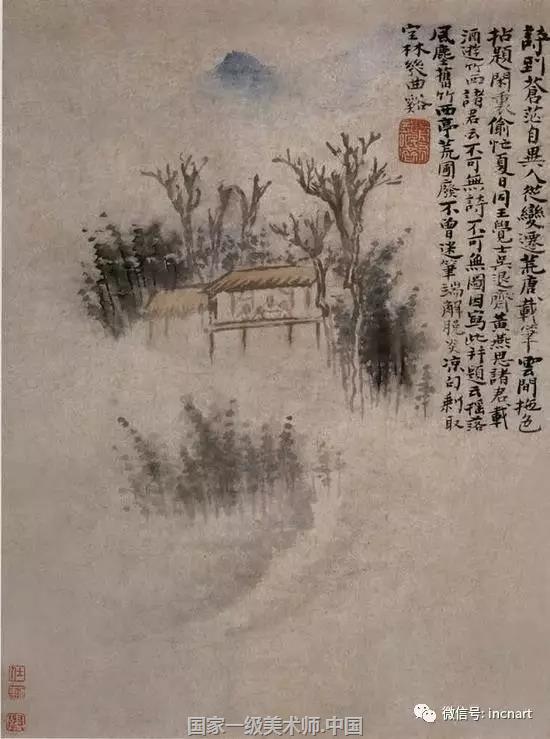 詩到蒼茫自異人從變遷荒唐載筆雲間拖色
拈題閑裏偷忙夏日同王覺士吳退齋黃燕思諸君載
酒遊竹西諸君云不可無詩不可無圖因寫此并題云搖落
風塵舊竹西亭荒圃廢不曾迷筆端解脫炎涼句剩取
空林幾曲谿
国家一级美术师.中国
微信号: incnart